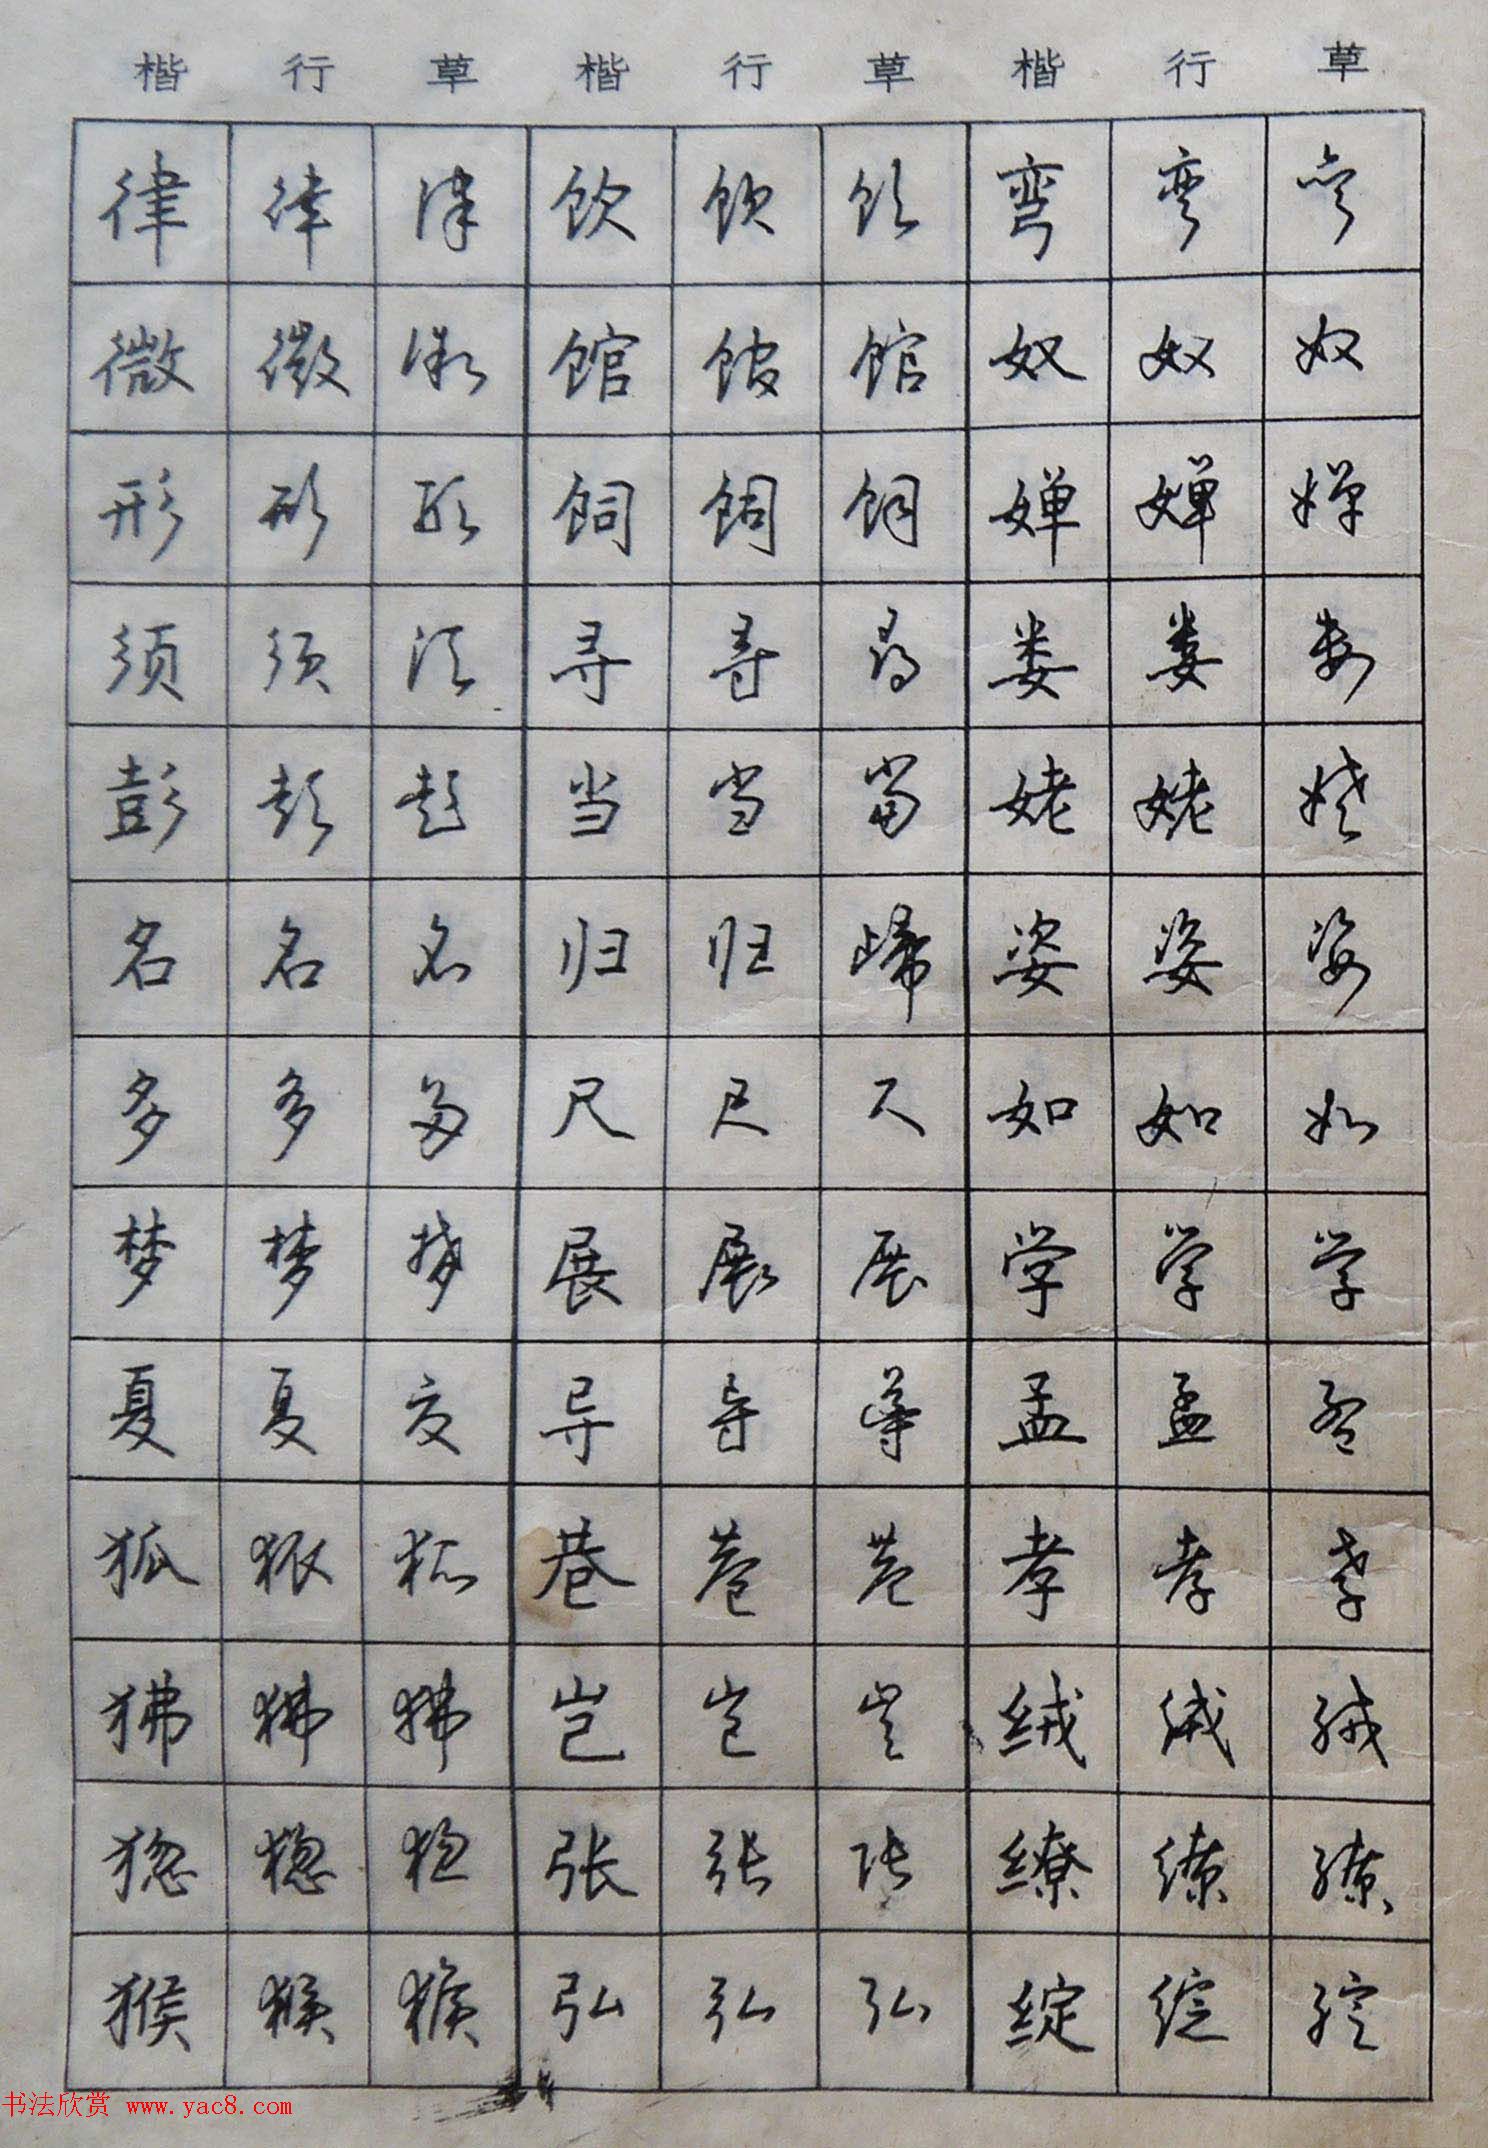 楷 行 草 楷 行 草 楷 行 草
律 律 律 饮 饮 饮 弯 弯 弯
微 微 微 馆 馆 馆 奴 奴 奴
形 形 形 饲 饲 饲 婵 婵 婵
须 须 须 寻 寻 尋 娄 娄 娄
彭 彭 彭 当 当 當 姥 姥 姥
名 名 名 归 归 歸 姿 姿 姿
多 多 多 尺 尺 尺 如 如 如
梦 梦 梦 展 展 展 学 学 学
夏 夏 夏 导 导 導 孟 孟 孟
狐 狐 狐 巷 巷 巷 孝 孝 孝
狒 狒 狒 岂 岂 岂 绒 绒 绒
猕 张 张 张 缭 缭 缭
猴 猴 猴 弘 弘 弘 绽 绽 绽
书法欣赏 www.yac8.com